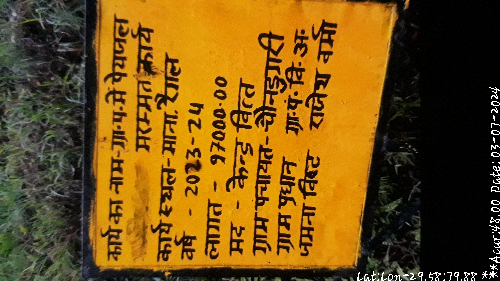 कार्य का नाम-ग्रा॰प॰मे पेयजल
मरम्मत कार्य
कार्य स्थल-माना. रैाल
वर्ष - 2023-24
लागत - 97000.00
मद - केन्द्र वित्त
ग्राम पंचायत-चौनडुंगरी
ग्राम प्रधान ग्रा॰पं॰वि॰अ॰
जमना विष्ट राकेश वर्मा
Lat:Lon-29.58:79.88 ***Acur:48.00 Date:03-07-2024